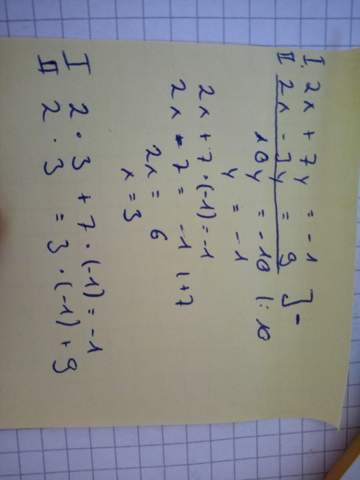 I. 2x + 7y = -1
II 2x - 3y = 9 ] -
10y = -10 |: 10
y = -1
2x + 7 · (-1) = -1
2x - 7 = -1 |+7
2x = 6
x = 3
I 2 · 3 + 7 · (-1) = -1
II 2 · 3 = 3 · (-1) + 9